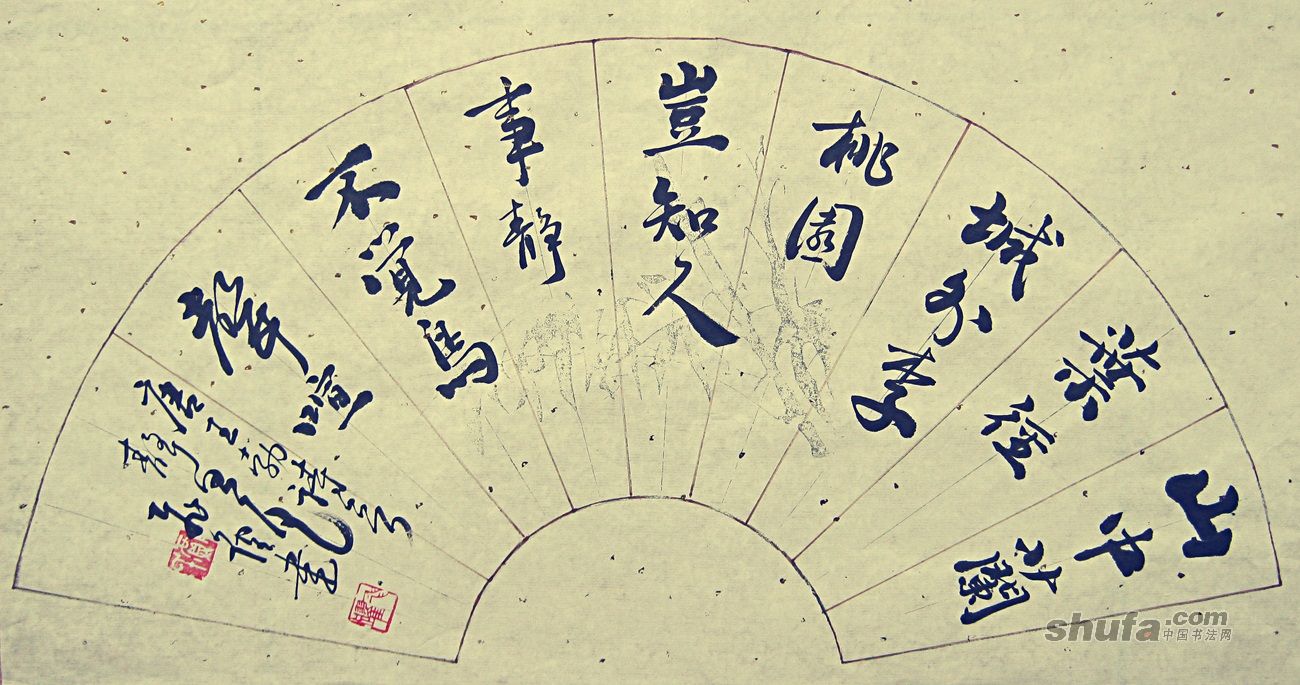 山中蘭
葉徑
城外李
桃園
豈知人
事静
不覺鳥
聲喧
唐王勃詩
書
shufa.com
中国书法网